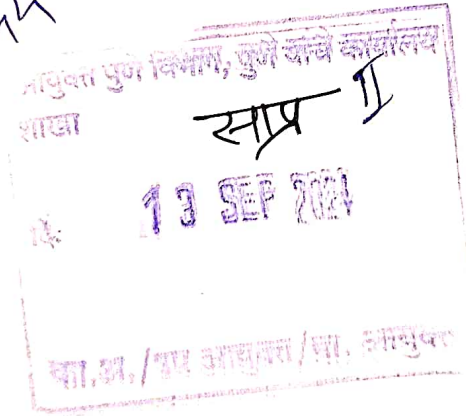 आयुक्त पुणे विभाग, पुणे यांचे कार्यालय
शाखा साप्र II
दि. 13 SEP 2024
का.अ./उप आयुक्त/मा. आयुक्त